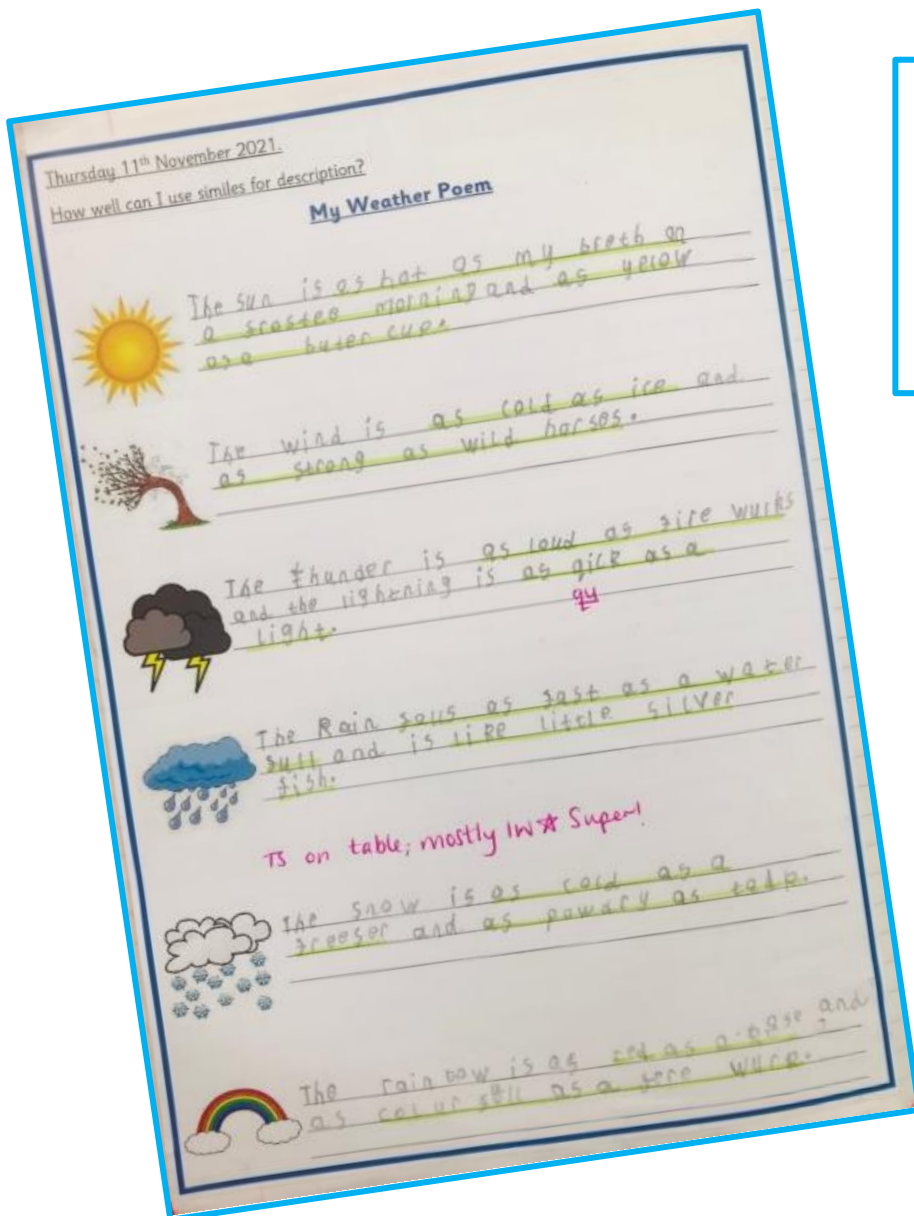 Thursday 11th November 2021.
How well can I use similes for description?
My Weather Poem
The sun is as hot as my breth on
a frostee morning and as yelow
as a buter cup.
The wind is as cold as ice and
as strong as wild horses.
The thunder is as loud as fire wurks
and the lightning is as qick as a
qu
light.
The Rain falls as fast as a water
full and is like little silver
fish.
TS on table; mostly IW☆ Super!
The snow is as cold as a
freeser and as powdry as
The rainbow is as red as a and
as colur full as a fire wurk.